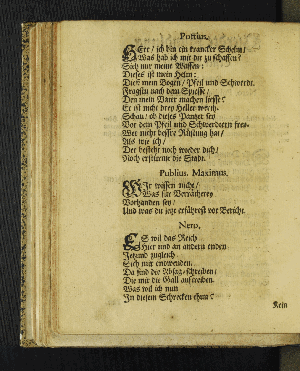 Porrius.
HErr / ich bin ein krancker Schelm /
Was hab ich mit dir zu schaffen?
Sich nur meine Waffen:
Dieses ist mein Helm:
Diß mein Bogen / Pfeil und Schwerdt.
Fragstu nach dem Spiesse /
Den mein Vater machen liesse?
Er ist nicht drey Heller werth.
Schau / ob dieses Pantzer sey
Vor dem Pfeil und Schwerdtern frey.
Wer nicht bessre Rüstung hat /
Als wie ich /
Der bestehe noch wieder dich /
Noch erstürmt die Stadt.
Publius. Maximus.
WIr wissen nicht /
Was für Verrätherey
Vorhanden sey /
Und was du jetzt erfährest vor Bericht.
Nero.
ES wil das Reich
Hier und an andern enden
Jetzund zugleich
Sich mir entwenden.
Da sind die Absag-schreiben /
Die mir die Gall auftreiben.
Was wil ich nun
In diesem Schrecken thun?
Kein